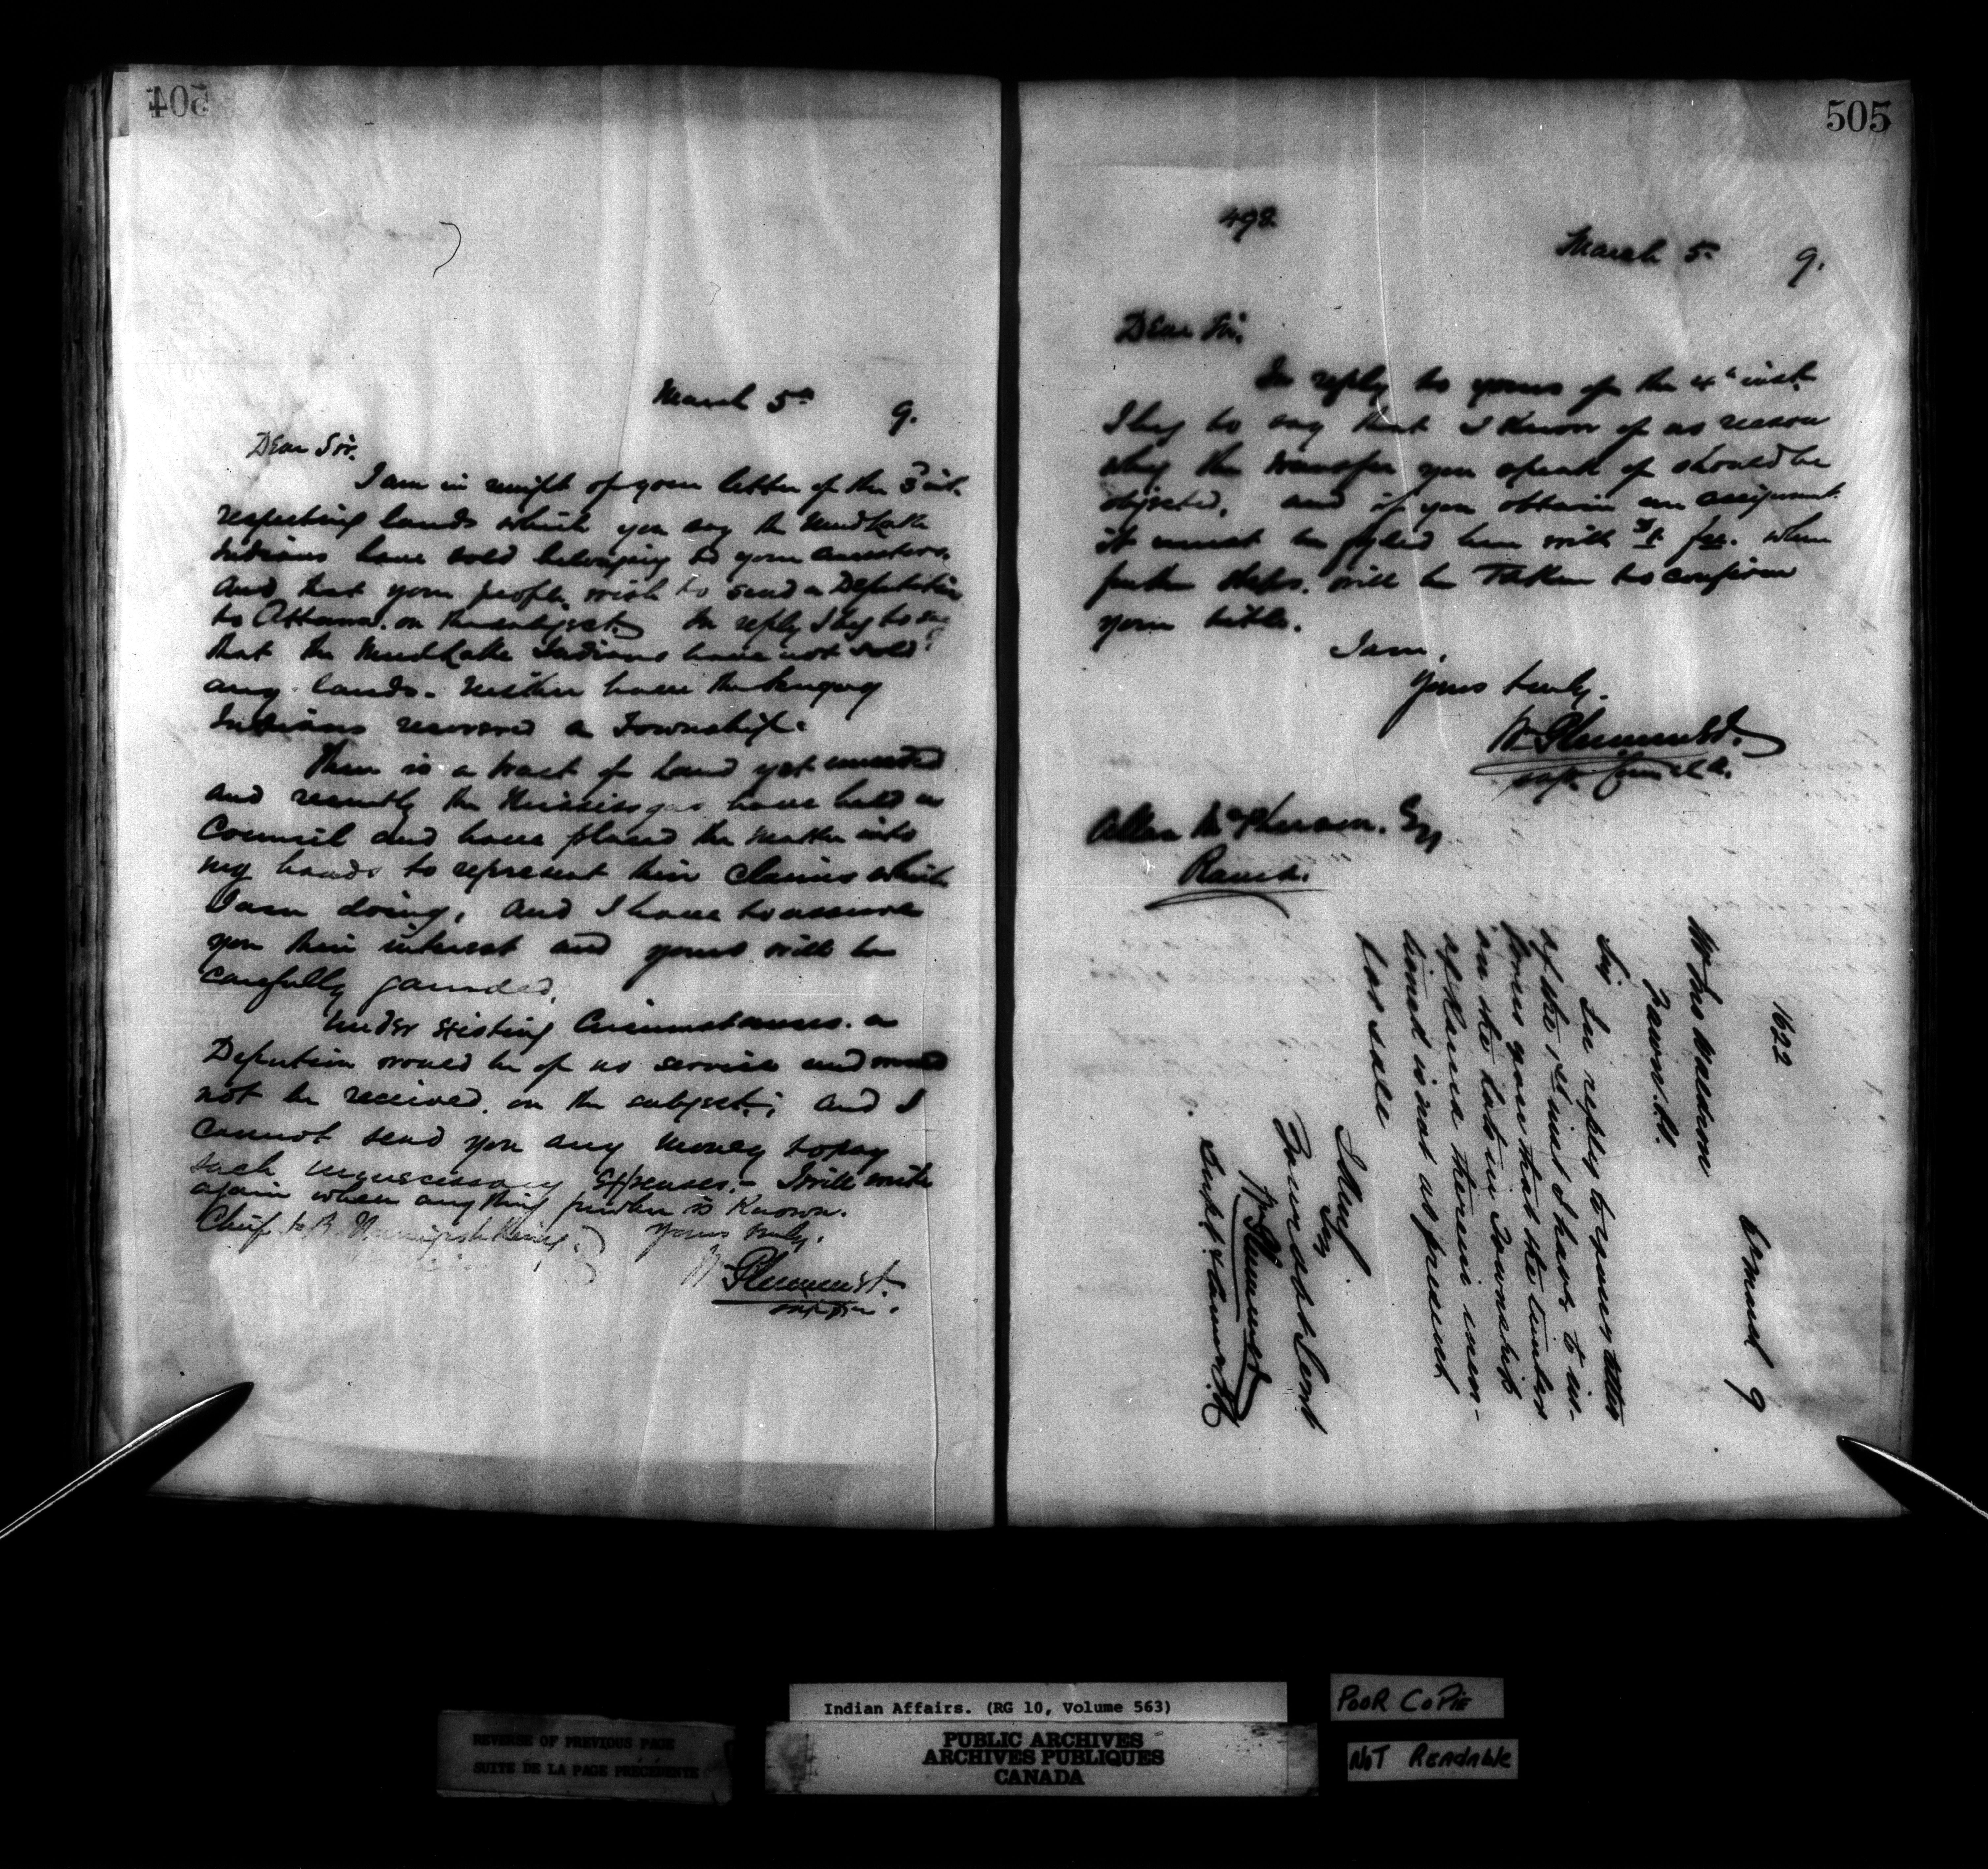 504
March 5th 9.
Dear Sir.
I am in receipt of your letter of the 3rd inst.
respecting lands which you say the Mud Lake
Indians have sold belonging to your ancestors,
and that your people wish to send a Deputation
to Ottawa. on the subject. In reply I beg to say
that the Mud Lake Indians have not sold
any lands. neither have the
Indians recovered a Township.
There is a tract of land yet unceded
and recently the Mississagas have held a
Council and have placed the matter into
my hands to represent their claims which
I am doing, and I have to assure
you their interest and yours will be
carefully gaurded.
Under existing Circumstances. a
Deputation would be of no service and would
not be received. on the subject; and I
cannot send you any money to pay
such unnecessary expenses. - I will write
again when anything further is known.
Chief Yours truly,
Wm Plummer
505
498
March 5 9.
Dear Sir,
In reply to yours of the 4th inst.
I beg to say that I know of no reason
why the transfer you speak of should be
objected, and if you obtain an assignment.
it must be fyled here with fee. when
further steps. will be taken to confirm
your title.
I am,
Yours truly.
Wm Plummer
Supt
Allan McPherson. Esq
Rama.
1622
9
Mr Jno Waldron
Sir
In reply to your letter
of the 1st inst I have to in-
form you that the timber
on the lots in Township
of Rama therein men-
tioned is not at present
for sale
I have
Sir
Your obt Servt
Wm Plummer
Supt & Commr
Indian Affairs. (RG 10, Volume 563)
PUBLIC ARCHIVES
ARCHIVES PUBLIQUES
CANADA
REVERSE OF PREVIOUS PAGE
SUITE DE LA PAGE PRÉCÉDENTE
POOR COPIE
NOT READABLE